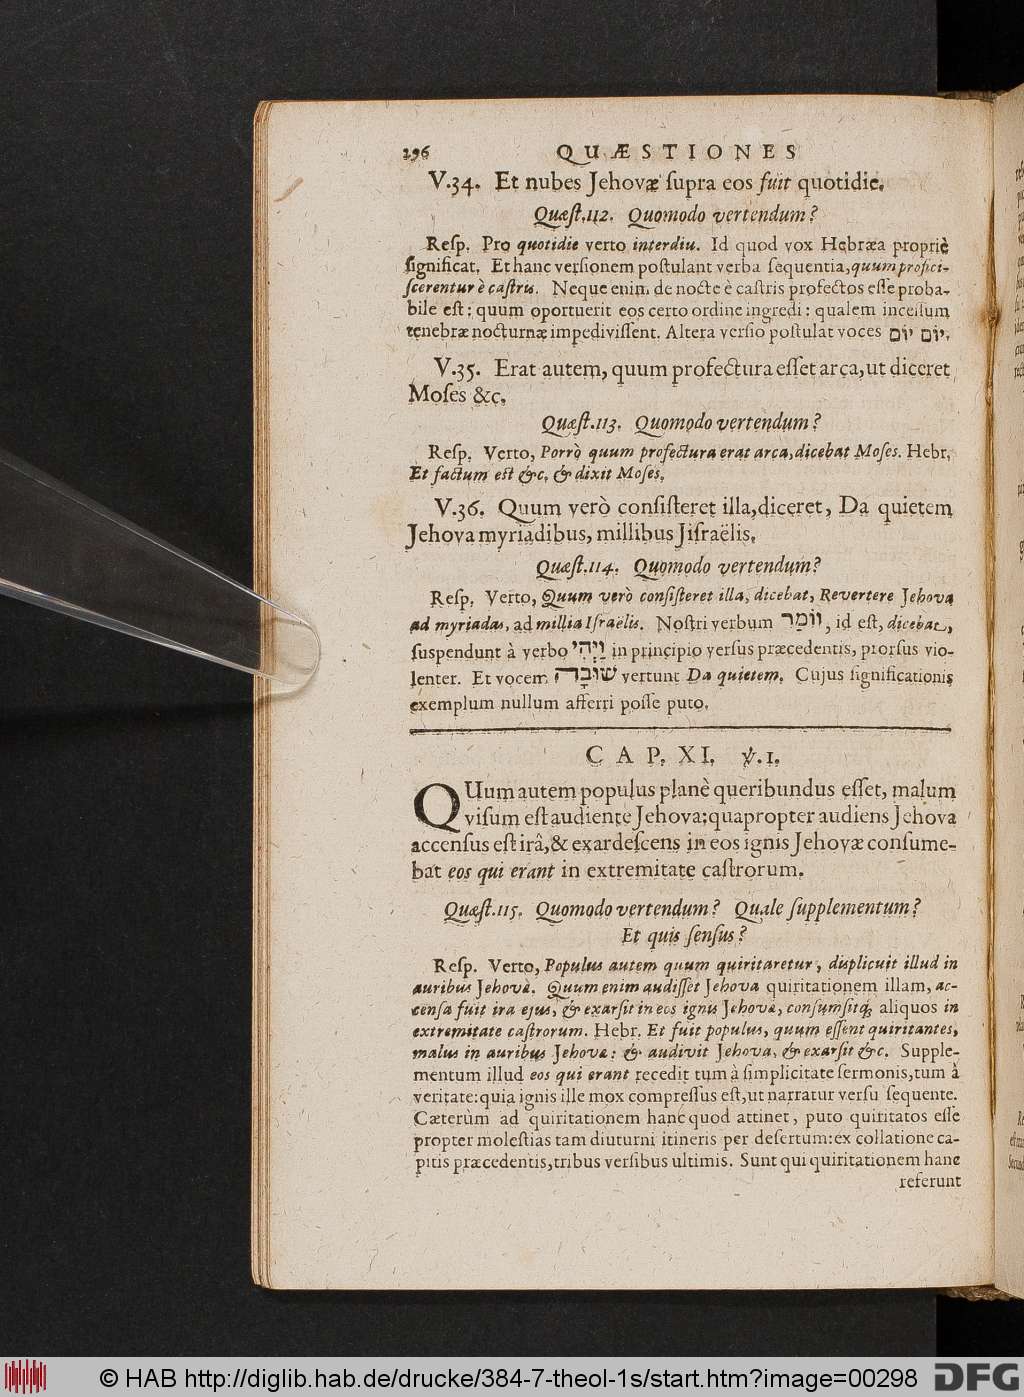 296 QUÆSTIONES
V.34. Et nubes Jehovæ supra eos fuit quotidie.
Quæst.112. Quomodo vertendum?
Resp. Pro quotidie verto interdiu. Id quod vox Hebræa propriè
significat. Et hanc versionem postulant verba sequentia, quum profici-
scerentur è castris. Neque enim de nocte è castris profectos esse proba-
bile est: quum oportuerit eos certo ordine ingredi: qualem incessum
tenebræ nocturnæ impedivissent. Altera versio postulat voces יום יום.
V.35. Erat autem, quum profectura esset arca, ut diceret
Moses &c.
Quæst.113. Quomodo vertendum?
Resp. Verto, Porrò quum profectura erat arca, dicebat Moses. Hebr.
Et factum est &c. & dixit Moses.
V.36. Quum verò consisteret illa, diceret, Da quietem
Jehova myriadibus, millibus Jisraëlis.
Quæst.114. Quomodo vertendum?
Resp. Verto, Quum verò consisteret illa, dicebat, Revertere Jehova
ad myriadas, ad millia Israëlis. Nostri verbum וֹוֹמַר, id est, dicebat,
suspendunt à verbo וַיְהִי in principio versus præcedentis, prorsus vio-
lenter. Et vocem שׁוּבָה vertunt Da quietem. Cujus significationis
exemplum nullum afferri posse puto.
CAP. XI. ℣.1.
QUum autem populus planè queribundus esset, malum
visum est audiente Jehova; quapropter audiens Jehova
accensus est irâ, & exardescens in eos ignis Jehovæ consume-
bat eos qui erant in extremitate castrorum.
Quæst.115. Quomodo vertendum? Quale supplementum?
Et quis sensus?
Resp. Verto, Populus autem quum quiritaretur, displicuit illud in
auribus Jehovæ. Quum enim audisset Jehova quiritationem illam, ac-
censa fuit ira ejus, & exarsit in eos ignis Jehovæ, consumsitq; aliquos in
extremitate castrorum. Hebr. Et fuit populus, quum essent quiritantes,
malus in auribus Jehovæ: & audivit Jehova, & exarsit &c. Supple-
mentum illud eos qui erant recedit tum à simplicitate sermonis, tum à
veritate: quia ignis ille mox compressus est, ut narratur versu sequente.
Cæterùm ad quiritationem hanc quod attinet, puto quiritatos esse
propter molestias tam diuturni itineris per desertum: ex collatione ca-
pitis præcedentis, tribus versibus ultimis. Sunt qui quiritationem hanc
referunt
© HAB http://diglib.hab.de/drucke/384-7-theol-1s/start.htm?image=00298
DFG